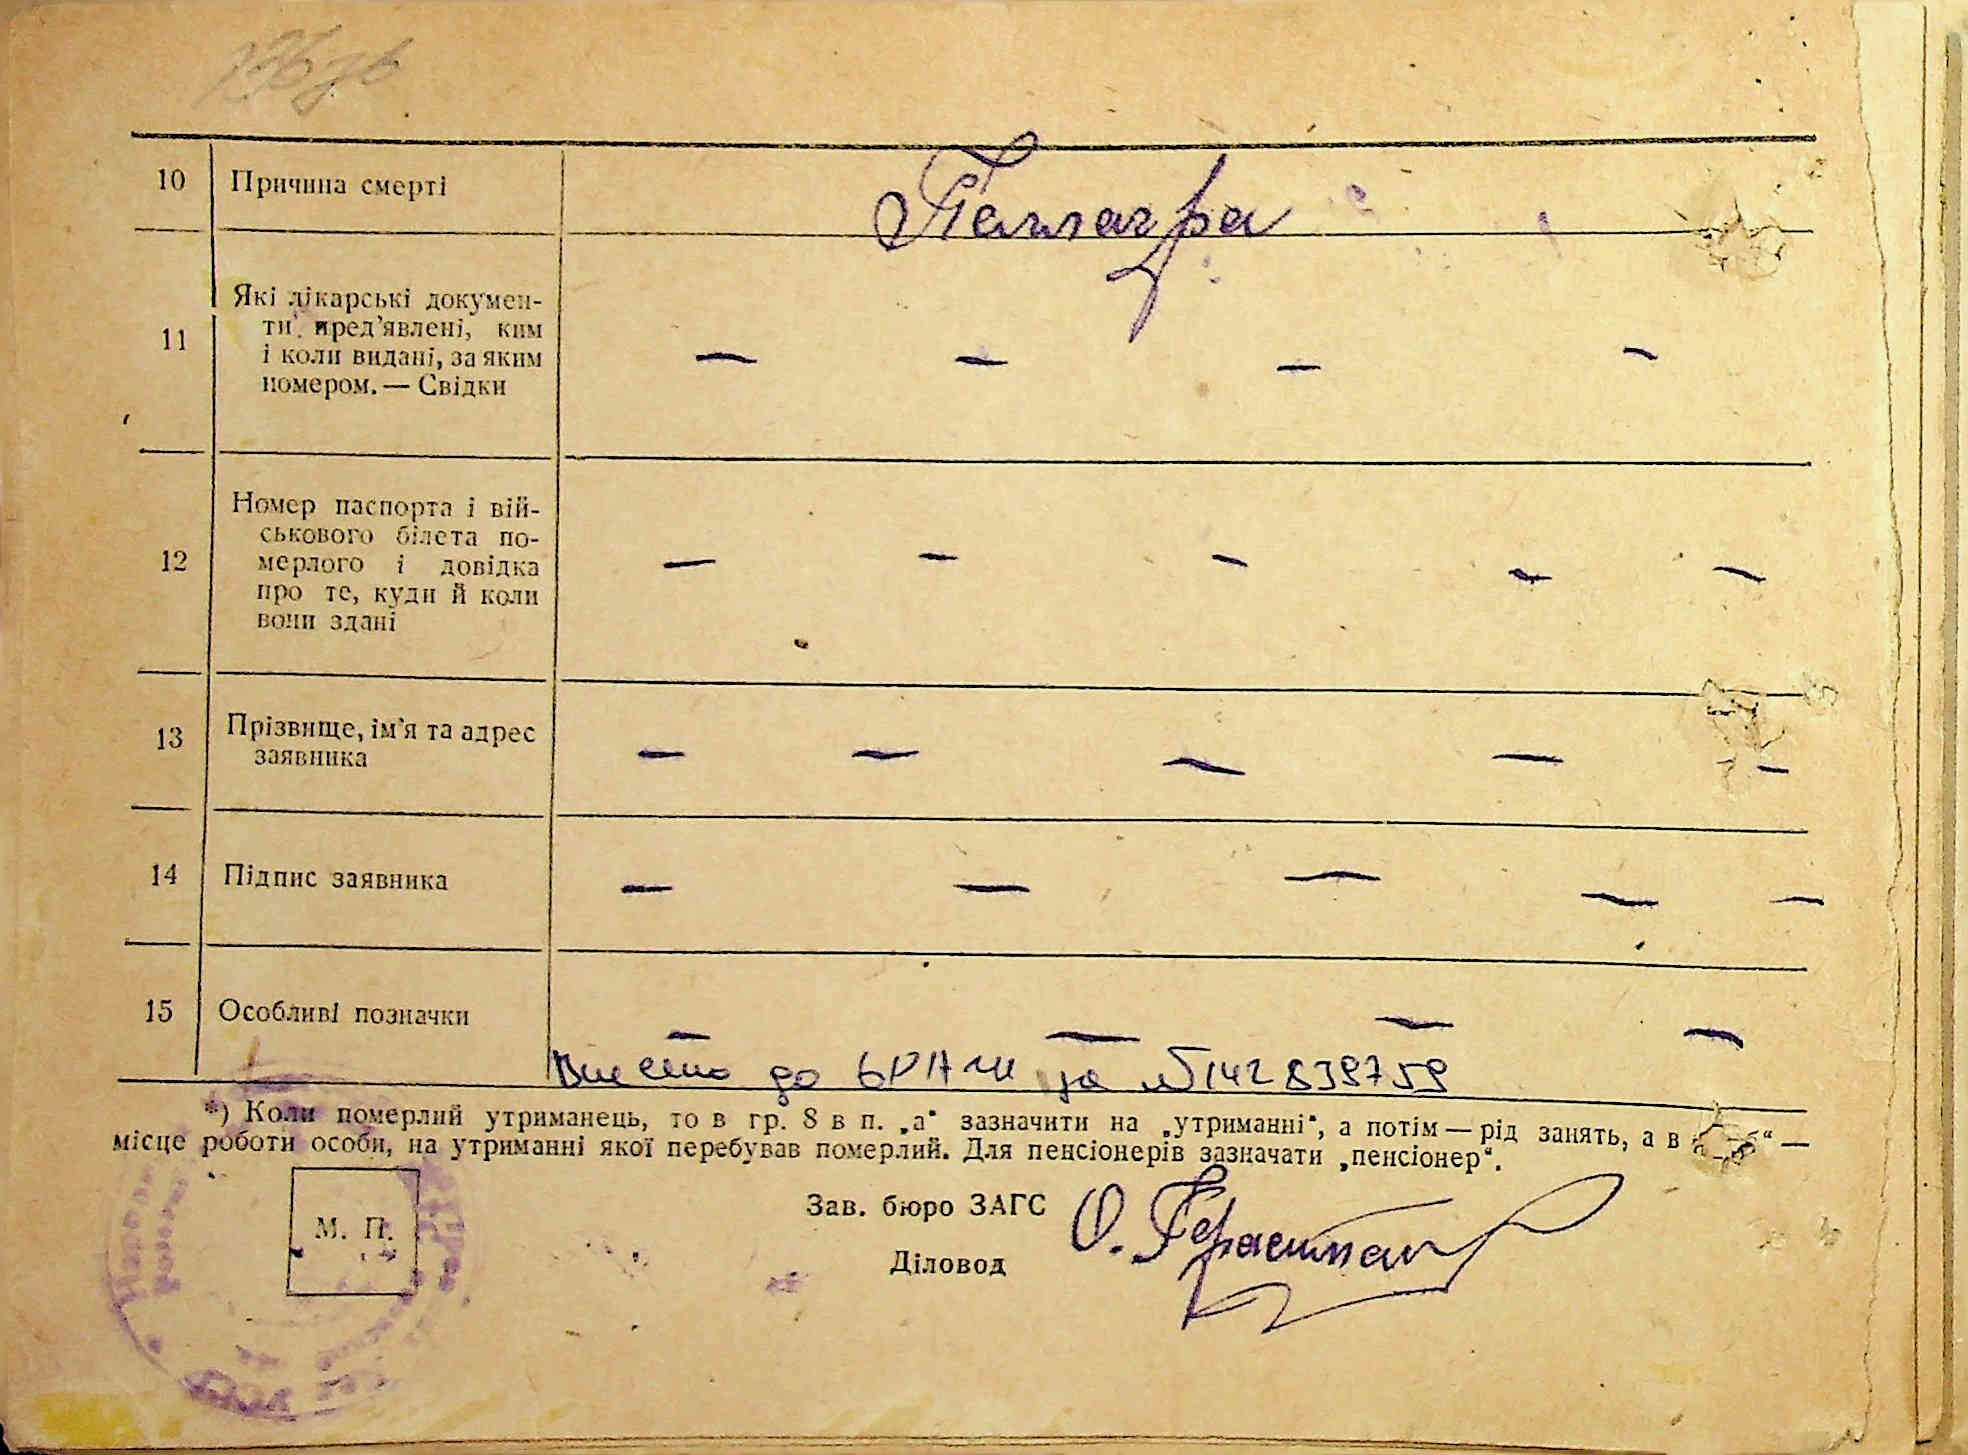 10 Причина смерті Пеллагра
11 Які лікарські докумен-
ти пред’явлені, ким
і коли видані, за яким
номером. — Свідки
— — — —
12 Номер паспорта і вій-
ськового білета по-
мерлого і довідка
про те, куди й коли
вони здані
— — — — —
13 Прізвище, ім’я та адрес
заявника
— — — — —
14 Підпис заявника — — — — —
15 Особливі позначки — — — —
Внесено до за № 142839759
*) Коли померлий утриманець, то в гр. 8 в п. „а“ зазначити на „утриманні“, а потім — рід занять, а в —
місце роботи особи, на утриманні якої перебував померлий. Для пенсіонерів зазначати „пенсіонер“.
М. П.
Зав. бюро ЗАГС
Діловод